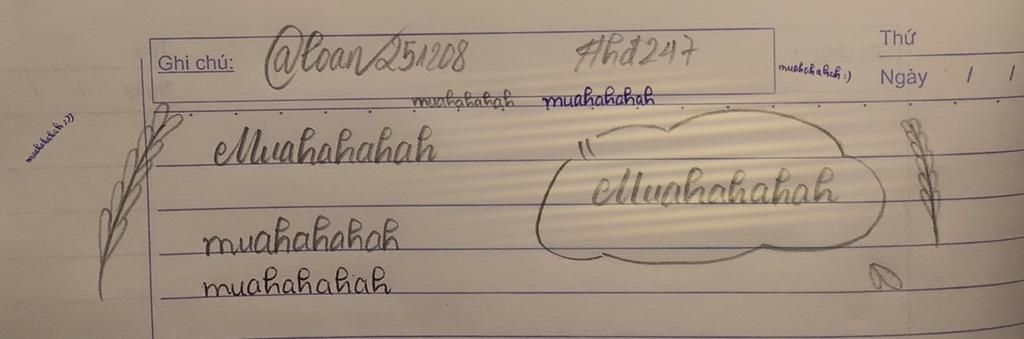 Ghi chú: @loan251208 #hd247 Thứ
muahahahah:) Ngày / /
muahahahah muahahahah
muahahahah:))
Muahahahah
Muahahahah
muahahahah
muahahahah